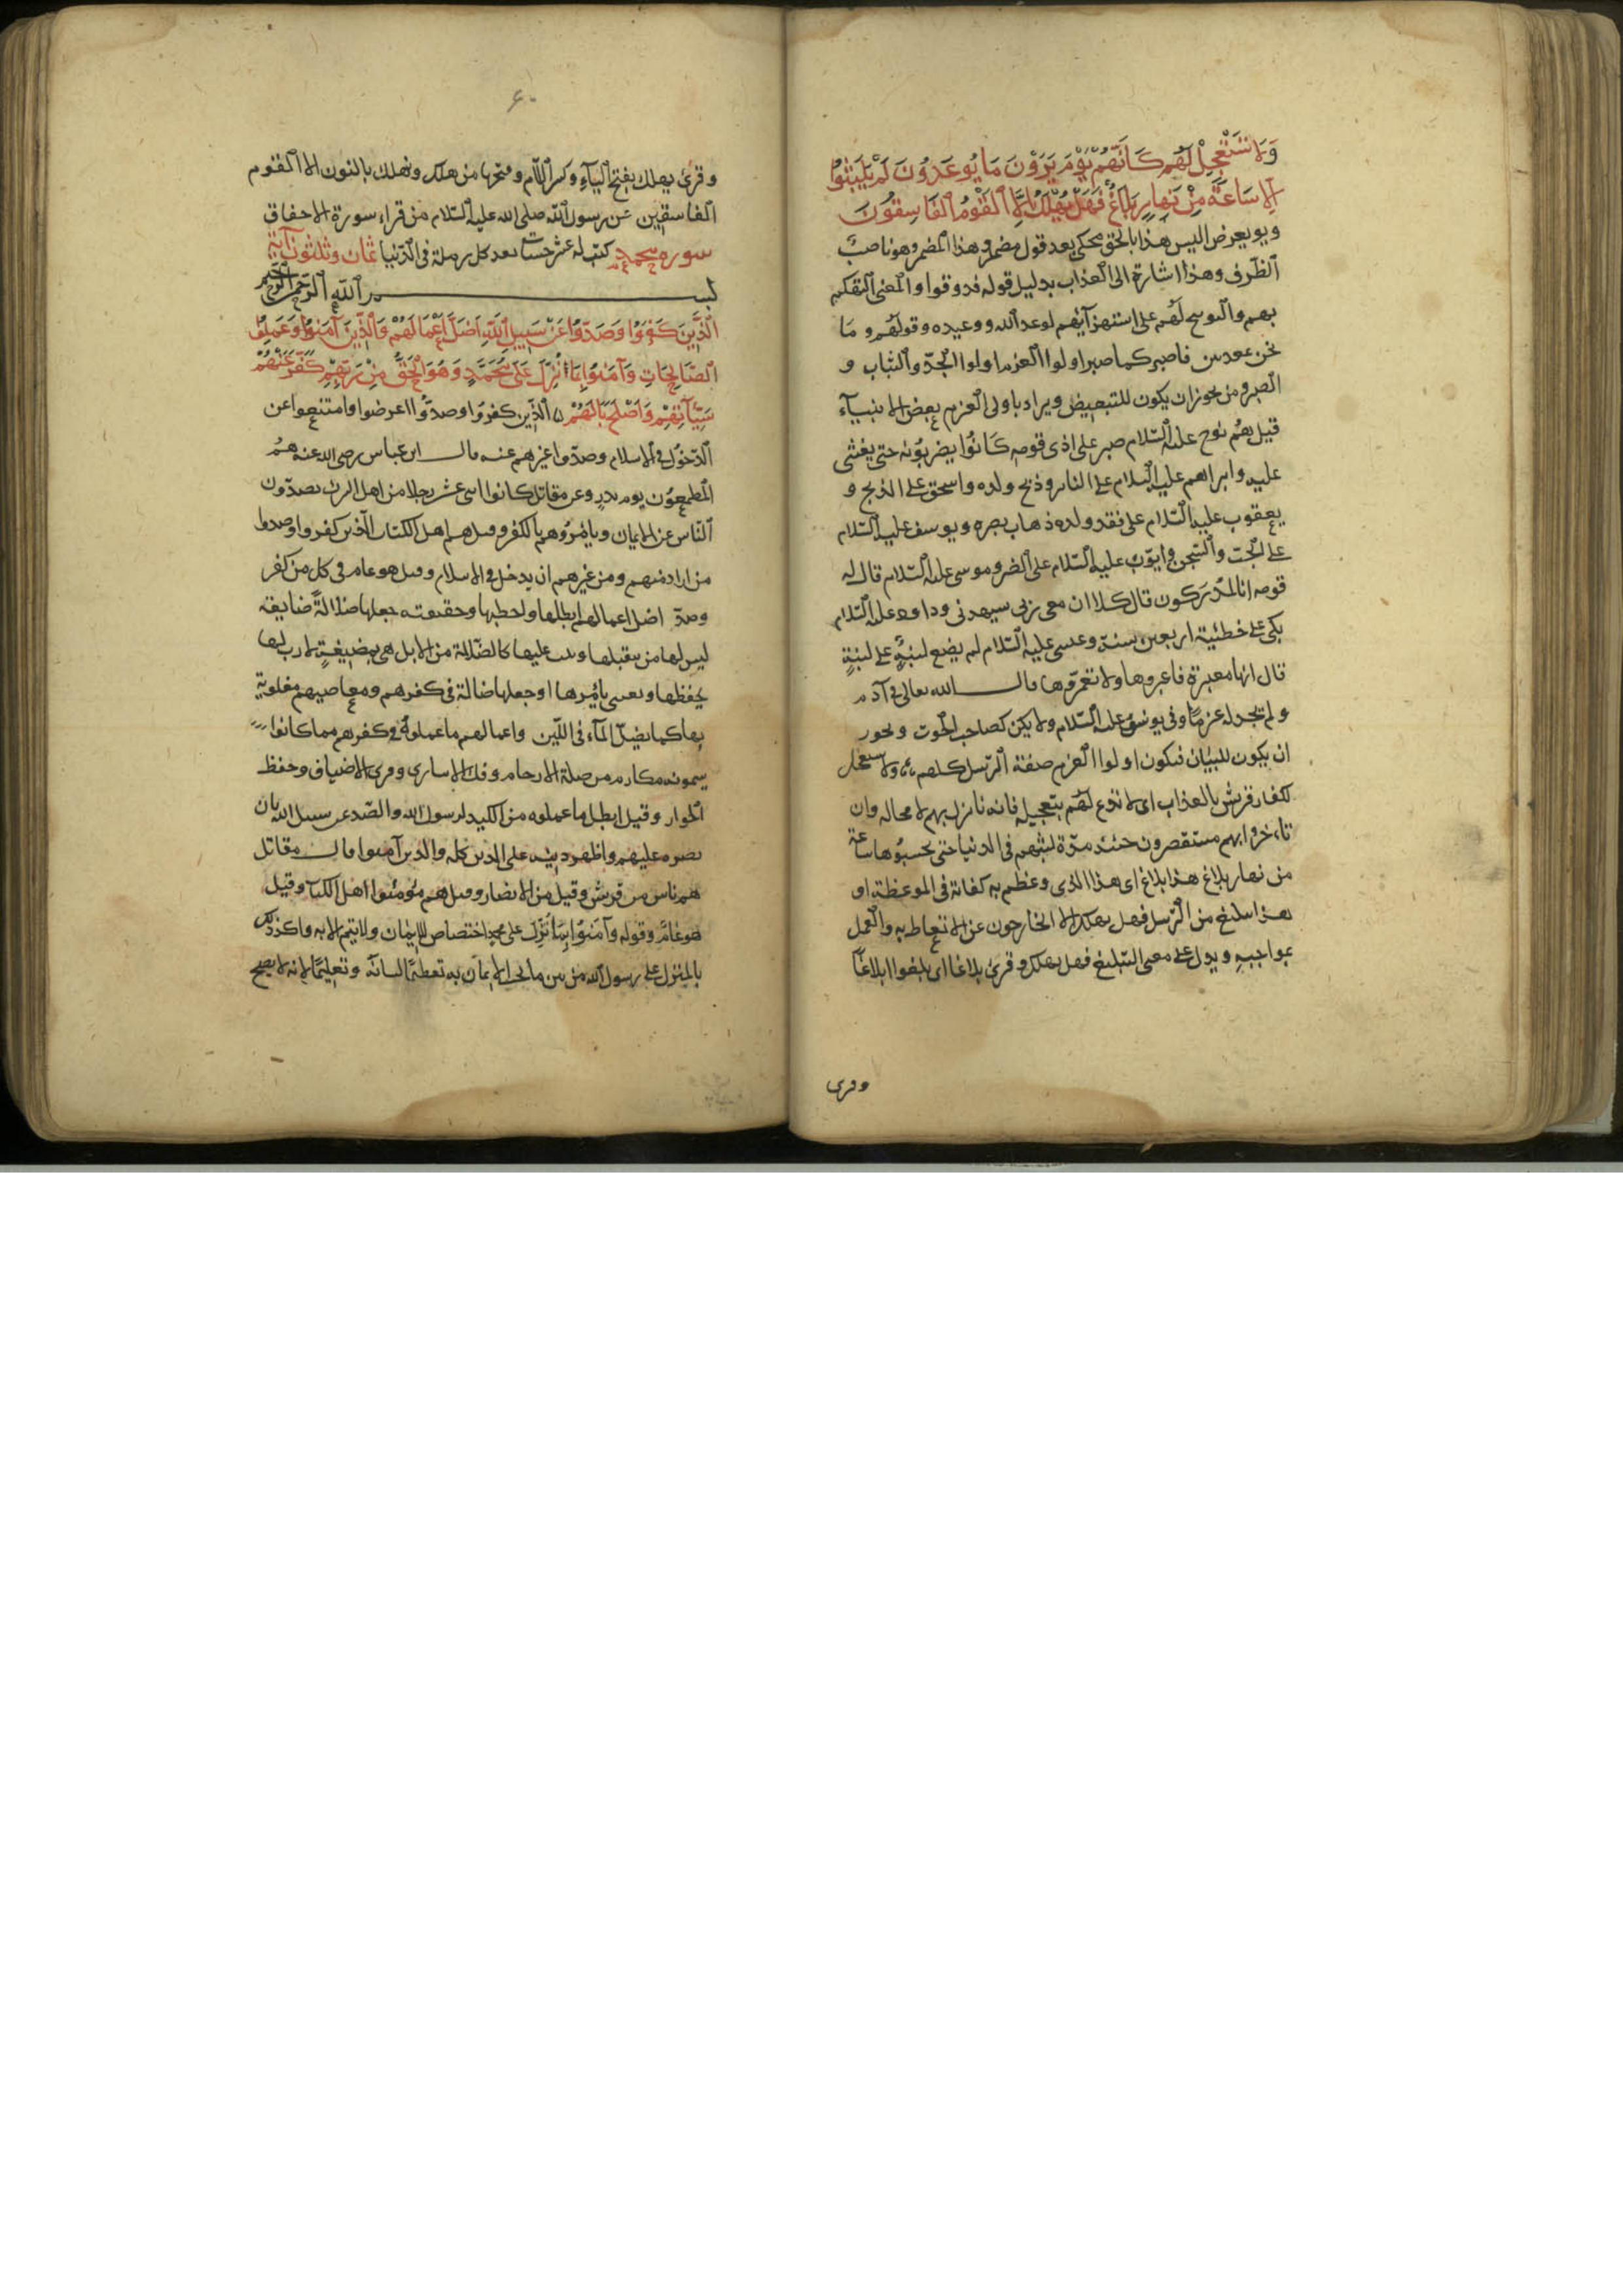 وَلَا تَسْتَعْجِلْ لَهُمْ كَأَنَّهُمْ يَوْمَ يَرَوْنَ مَا يُوعَدُونَ لَمْ يَلْبَثُوا
اِلَّا سَاعَةً مِنْ نَهَارٍ بَلَاغٌ فَهَلْ يُهْلَكُ اِلَّا الْقَوْمُ الْفَاسِقُونَ
ويوم يعرض اليس هذا بالحق محكى بعد قول مضمر وهذا المضمر هو ناصب
الظرف وهذا اشارة الى العذاب بدليل قوله فذوقوا والمعنى التهكم
بهم والتوبيخ لهم على استهزآئهم لوعد الله ووعيده وقولهم وما
نحن بمعذبين فاصبر كما صبر اولوا العزم اولوا الجدّ والثبات و
الصبر ومن يجوز ان يكون للتبعيض ويراد باولى العزم بعض الانبيآء
قيل هم نوح عليه السّلام صبر على اذى قومه كانوا يضربونه حتى يغشى
عليه وابراهيم عليه السلام على النار وذبح ولده واسحق على الذبح و
يعقوب عليه السّلام على فقد ولده وذهاب بصره ويوسف عليه السّلام
على الجب والسّجن وايّوب عليه السّلام على الضر وموسى عليه السّلام قال له
قومه انا لمدركون قال كلا ان معى ربى سيهدنى وداود عليه السّلام
بكى على خطئيته اربعين سنة وعيسى عليه السّلام لم يضع لبنةً على لبنةٍ
قال انها معبرة فاعبروها ولا تعمّروها قال الله تعالى فى آدم
ولم نجد له عزمًا وفى يونس عليه السّلام ولا تكن كصاحب الحوت ويجوز
ان يكون للبيان فيكون اولوا العزم صفة الرّسل كلهم ولا تستعجل
لكفار قريش بالعذاب اى لا تدع لهم بتعجيله فانه نازل بهم لا محالة وان
تاءخر وانهم مستقصرون حينئذ مدّة لبثهم فى الدنيا حتى يحسبوها ساعة
من نهار بلاغ هذا بلاغ اى هذا الذى وعظتم به كفاية فى الموعظة او
هذا تبليغ من الرّسل فهل يهلك الا الخارجون عن الاتعاظ به والعمل
بمواجبه ويدل على معنى التبليغ فهل يهلك وقرئ بلاغا اى بلغوا بلاغًا
وقرئ
٤٠
وقرئ يهلك بفتح اليآء وكسر اللام وفتحها من هلك ونهلك بالنون الا القوم
الفاسقين عن رسول الله صلى الله عليه السّلام من قراء سورة الاحقاف
كتب له عشر حسنات بعدد كل رملة فى الدّنيا سورة محمد ثمان وثلثون آية
بسم الله الرّحمن الرّحيم
اَلَّذِينَ كَفَرُوا وَصَدُّوا عَنْ سَبِيلِ اللّٰهِ اَضَلَّ اَعْمَالَهُمْ وَالَّذِينَ آمَنُوا وَعَمِلُوا
الصَّالِحَاتِ وَآمَنُوا بِمَا نُزِّلَ عَلَى مُحَمَّدٍ وَهُوَ الْحَقُّ مِنْ رَبِّهِمْ كَفَّرَ عَنْهُمْ
سَيِّآتِهِمْ وَاَصْلَحَ بَالَهُمْ الّذين كفروا وصدّوا اعرضوا وامتنعوا عن
الدّخول فى الاسلام وصدّوا غيرهم عنه قال ابن عباس رضى الله عنه هم
المطعمون يوم بدر وعن مقاتل كانوا اثنى عشر رجلا من اهل الشرك يصدّون
النّاس عن الايمان ويأمرونهم بالكفر وقيل هم اهل الكتاب الّذين كفروا وصدوا
من اراد منهم ومن غيرهم ان يدخل فى الاسلام وقيل هو عام فى كل من كفر
وصدّ اضل اعمالهم ابطلها واحبطها وحقيقته جعلها ضالّةً ضايعة
ليس لها من يتقبلها ويثيب عليها كالضّالة من الابل هى بمضيعةٍ لا رب لها
يحفظها ويعنى بامرها او جعلها ضالة فى كفرهم ومعاصيهم مغلوبة
بها كما يضلّ المآء فى اللّبن واعمالهم ما عملوه فى كفرهم مما كانوا
يسمونه مكارم من صلة الارحام وفك الاسارى وقرى الاضياف وحفظ
الجوار وقيل ابطل ما عملوه من الكيد لرسول الله والصّد عن سبيل الله بان
نصره عليهم واظهر دينه على الدين كله والذين آمنوا قال مقاتل
هم ناس من قريش وقيل من الانصار وقيل هم مؤمنوا اهل الكتاب وقيل
هو عامّ وقوله وآمنوا بما نُزِّل على محمد اختصاص للايمان ولا يتم الا به واكد ذلك
بالمنزل على رسول الله من بين ما يجب الايمان به تعظيمًا لشانه وتعليمًا لانه لا يصح